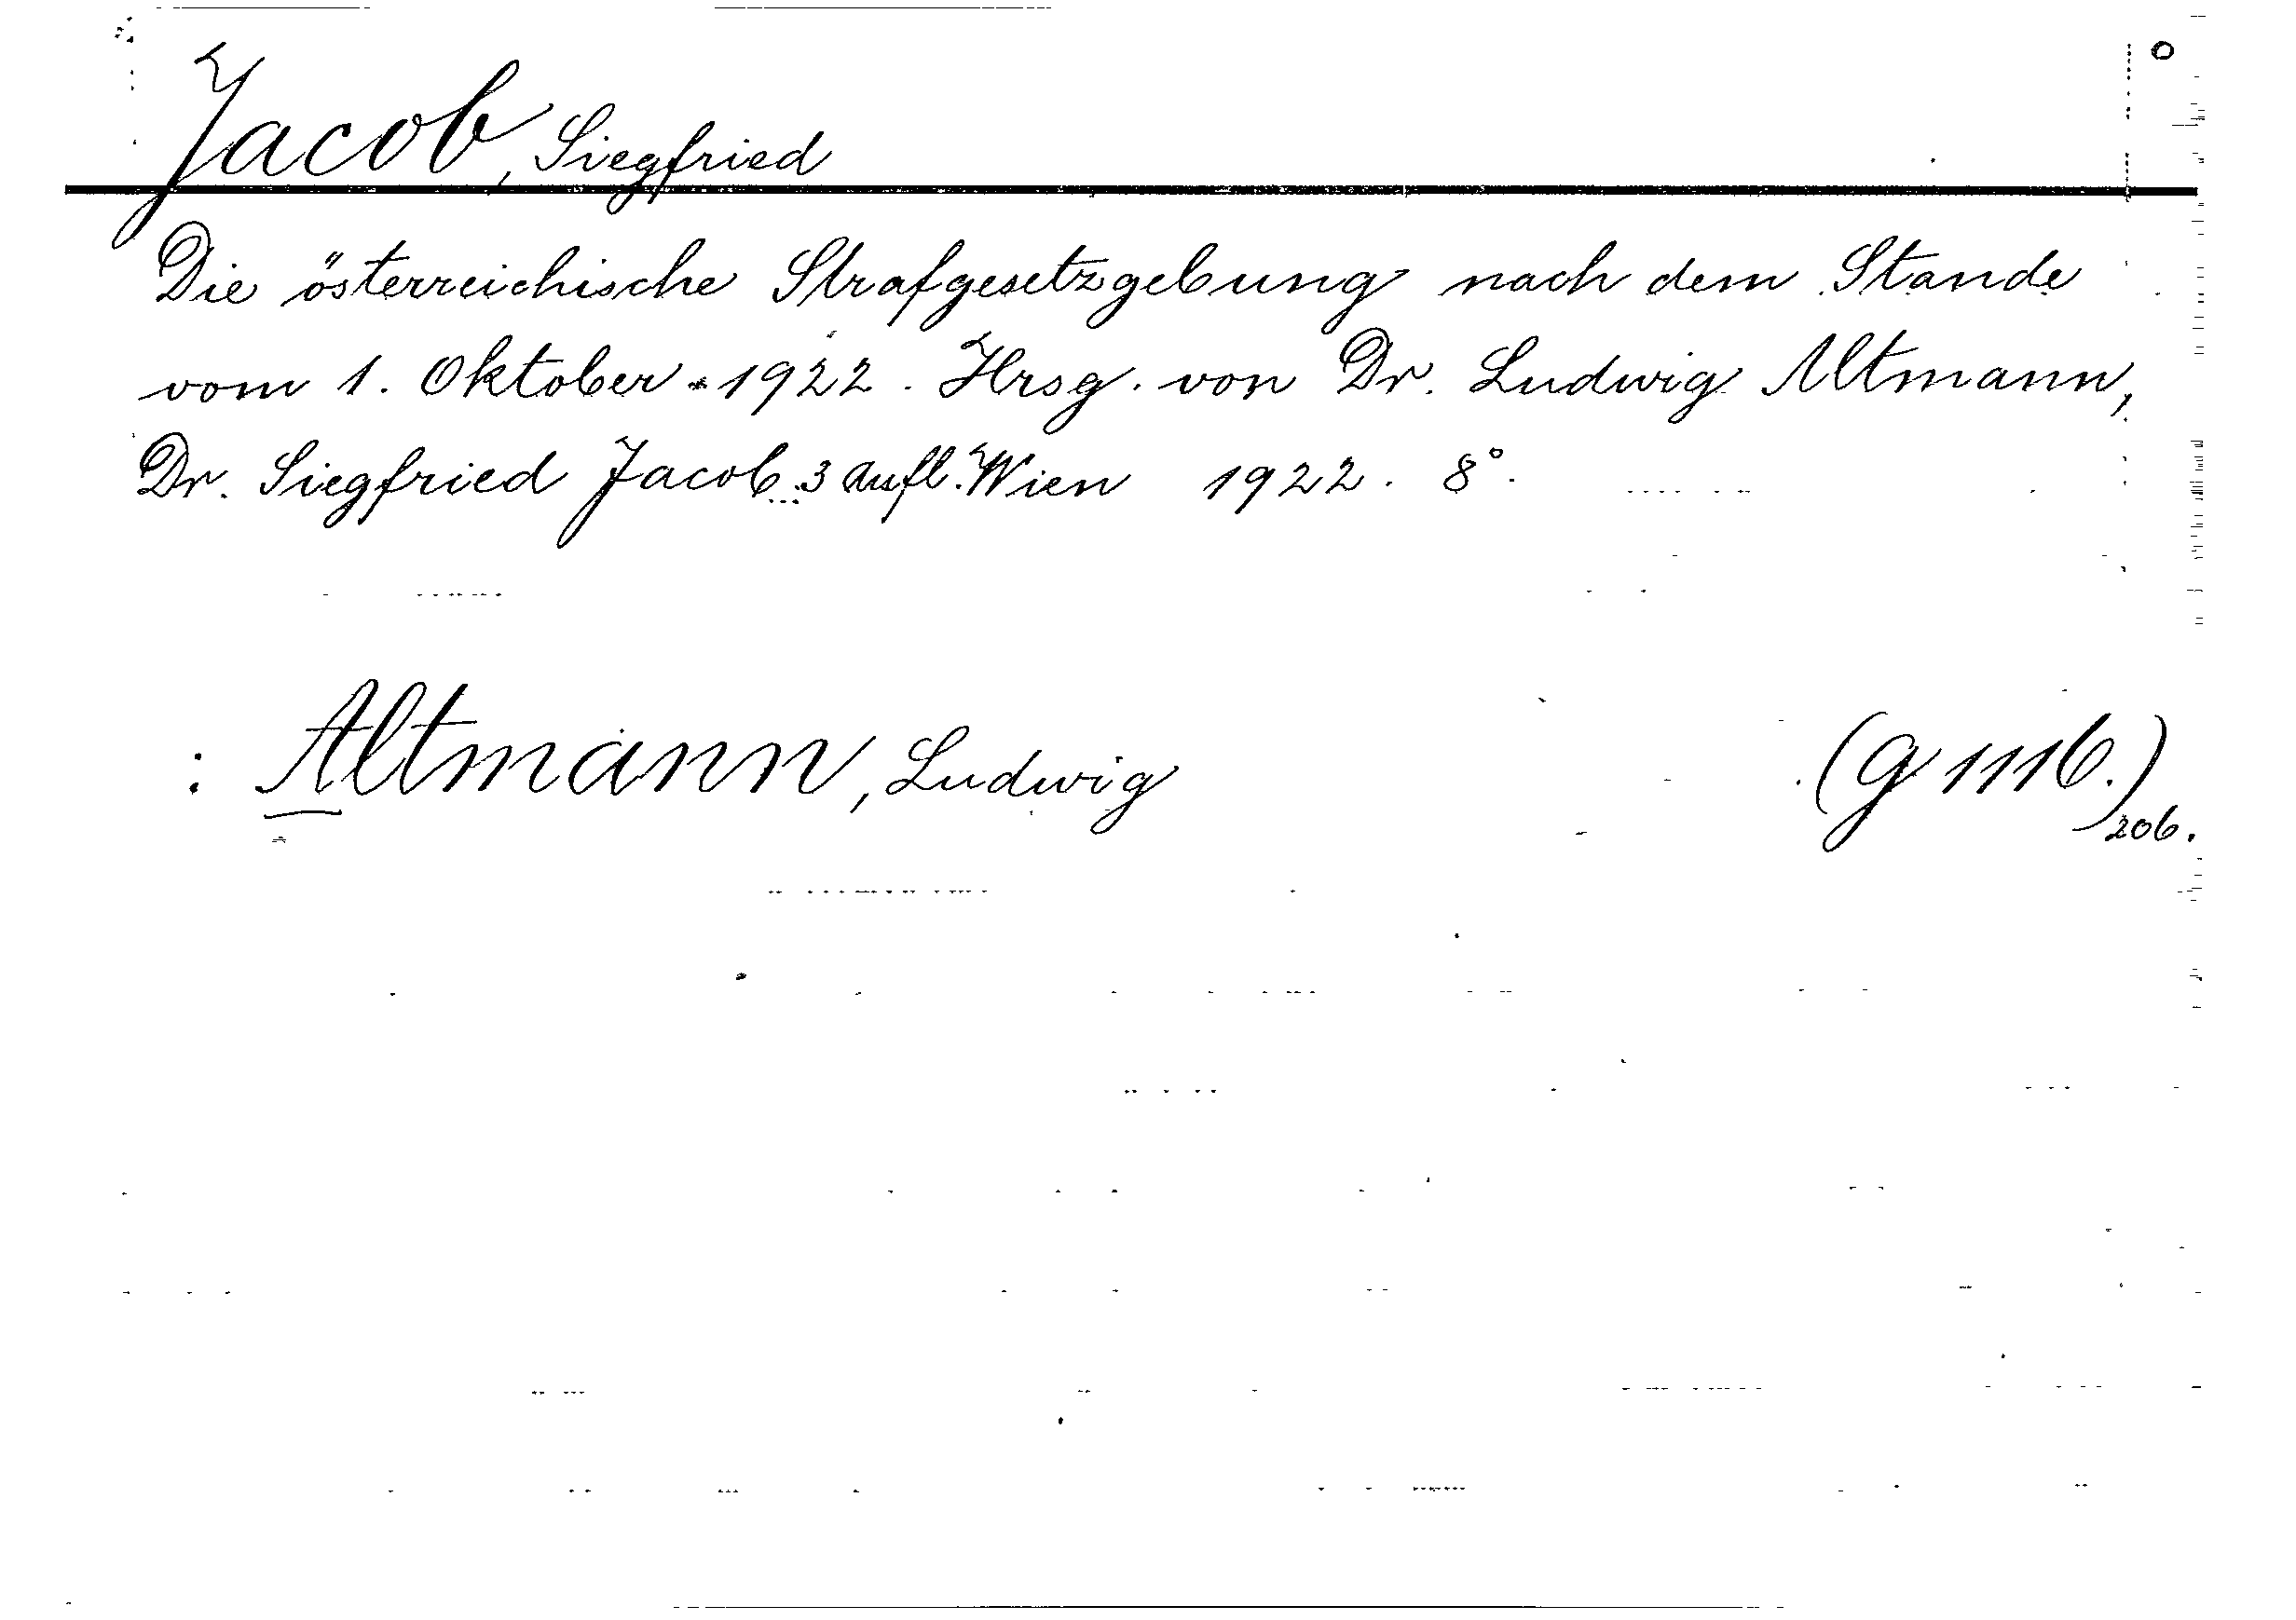 Jacob, Siegfried
Die österreichische Strafgesetzgebung nach dem Stande
vom 1. Oktober 1922. Hrsg. von Dr. Ludwig Altmann,
Dr. Siegfried Jacob. 3 Aufl. Wien 1922. 8°.
: Altmann, Ludwig (g 1116.)
206.